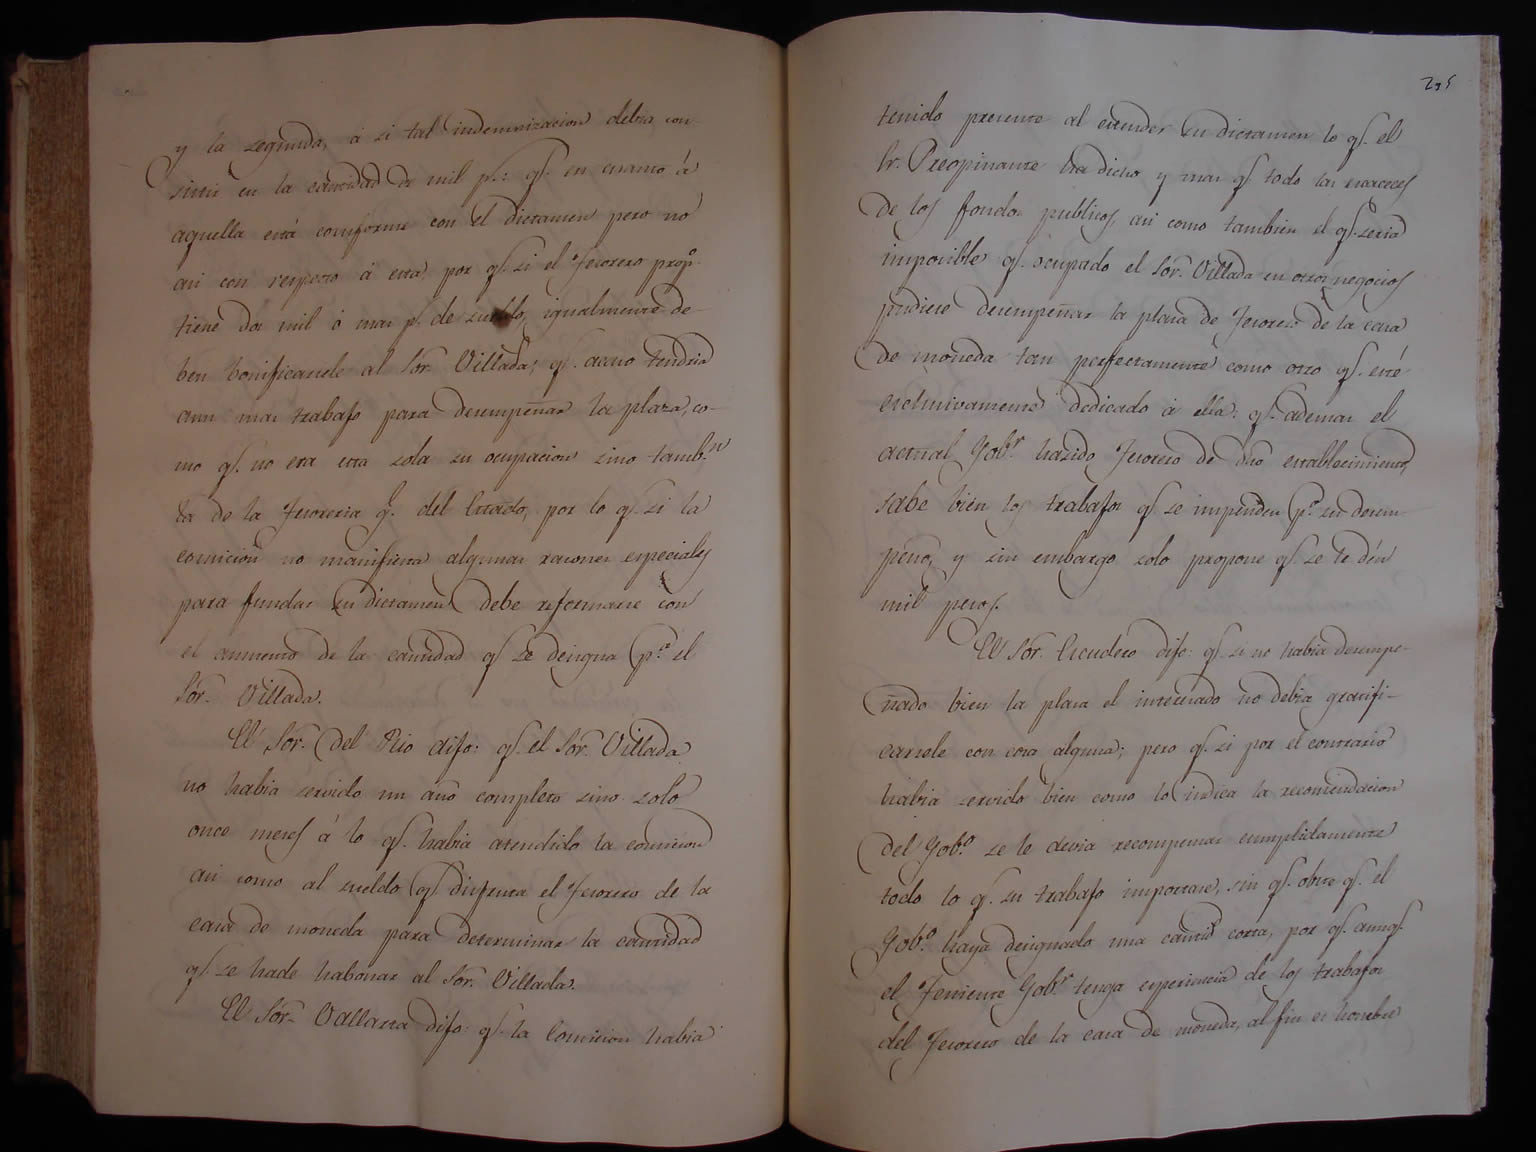 y la segunda, á si tal indemnizacion debia con-
sistir en la cantidad de mil p.s: q.e en cuanto á
aquella está conforme con el dictamen pero no
asi con respecto á esta, por q.e si el Tesorero prop.o
tiene dos mil ó mas p.s de sueldo, igualmente de-
ben bonificarsele al Sor. Villada; q.e acaso tendria
aun mas trabajo para desempeñar la plaza, co-
mo q.e no era esta sola su ocupacion sino tamb.n
la de la Tesoreria g.l del Estado, por lo q.e si la
comicion no manifiesta algunas razones especiales
para fundar su dictamen debe reformarse con
el aumento de la cantidad q.e se designa p.a el
Sor. Villada.
El Sor. Del Rio dijo: q.e el Sor. Villada
no habia servido un año completo sino solo
once meses á lo q.e habia atendido la comicion
asi como al sueldo q.e disfruta el Tesorero de la
casa de moneda para determinar la cantidad
q.e se hade habonar al Sor. Villada.
El Sor. Vallarta dijo q.e la Comicion habia
295
tenido presente al estender su dictamen lo q.e el
Sr. Preopinante ha dicho y mas q.e todo las escaceses
de los fondos publicos, asi como tambien el q.e seria
imposible q.e ocupado el Sor. Villada en otros negocios
pudiese desempeñar la plaza de Tesorero de la casa
de moneda tan perfectamente como otro q.e esté
esclusivamente dedicado á ella: q.e ademas el
actual Gob.r hasido Tesorero de dho establecimiento,
sabe bien los trabajos q.e se impenden p.a su desem-
peño, y sin embargo solo propone q.e se le dén
mil pesos.
El Sor. Escudero dijo: q.e si no habia desempe-
ñado bien la plaza el interesado no debia gratifi-
carsele con cosa alguna; pero q.e si por el contrario
habia servido bien como lo indica la recomendacion
del Gob.o se le devia recompensar cumplidamente
todo lo q.e su trabajo importase, sin q.e obste q.e el
Gob.o haya designado una cantid. corta, por q.e aunq.e
el Teniente Gob.r tenga esperiencia de los trabajos
del Tesorero de la casa de moneda, al fin es hombre